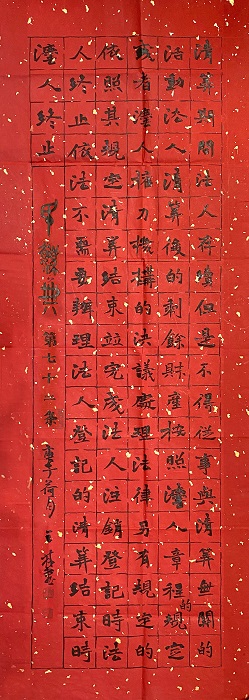 清算期間法人存續但是不得從事與清算無關的
活動法人清算後的剩餘財產按照灋人章程的規定
或者灋人權力機構的決議處理法律另有規定的
依照其規定清算結束竝完成法人注銷登記時法
人終止依法不需要辦理法人登記的清算結束時
灋人終止
第七十二條 庚子荷月